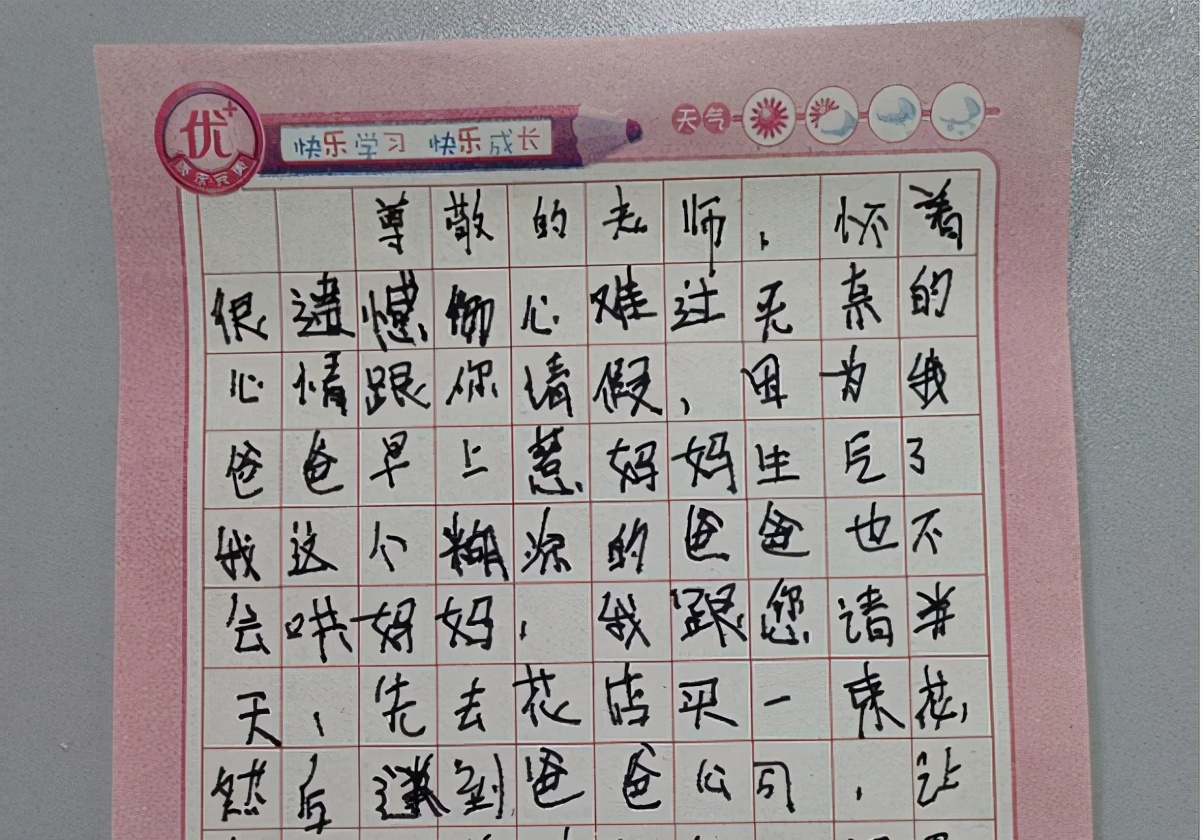 优+
快乐学习 快乐成长
天气
尊敬的老师，怀着
很遗憾伤心难过无奈的
心情跟你请假，因为我
爸爸早上惹妈妈生气了
我这个糊涂的爸爸也不
会哄妈妈，我跟您请半
天，先去花店买一束花，
然后送到爸爸公司，让